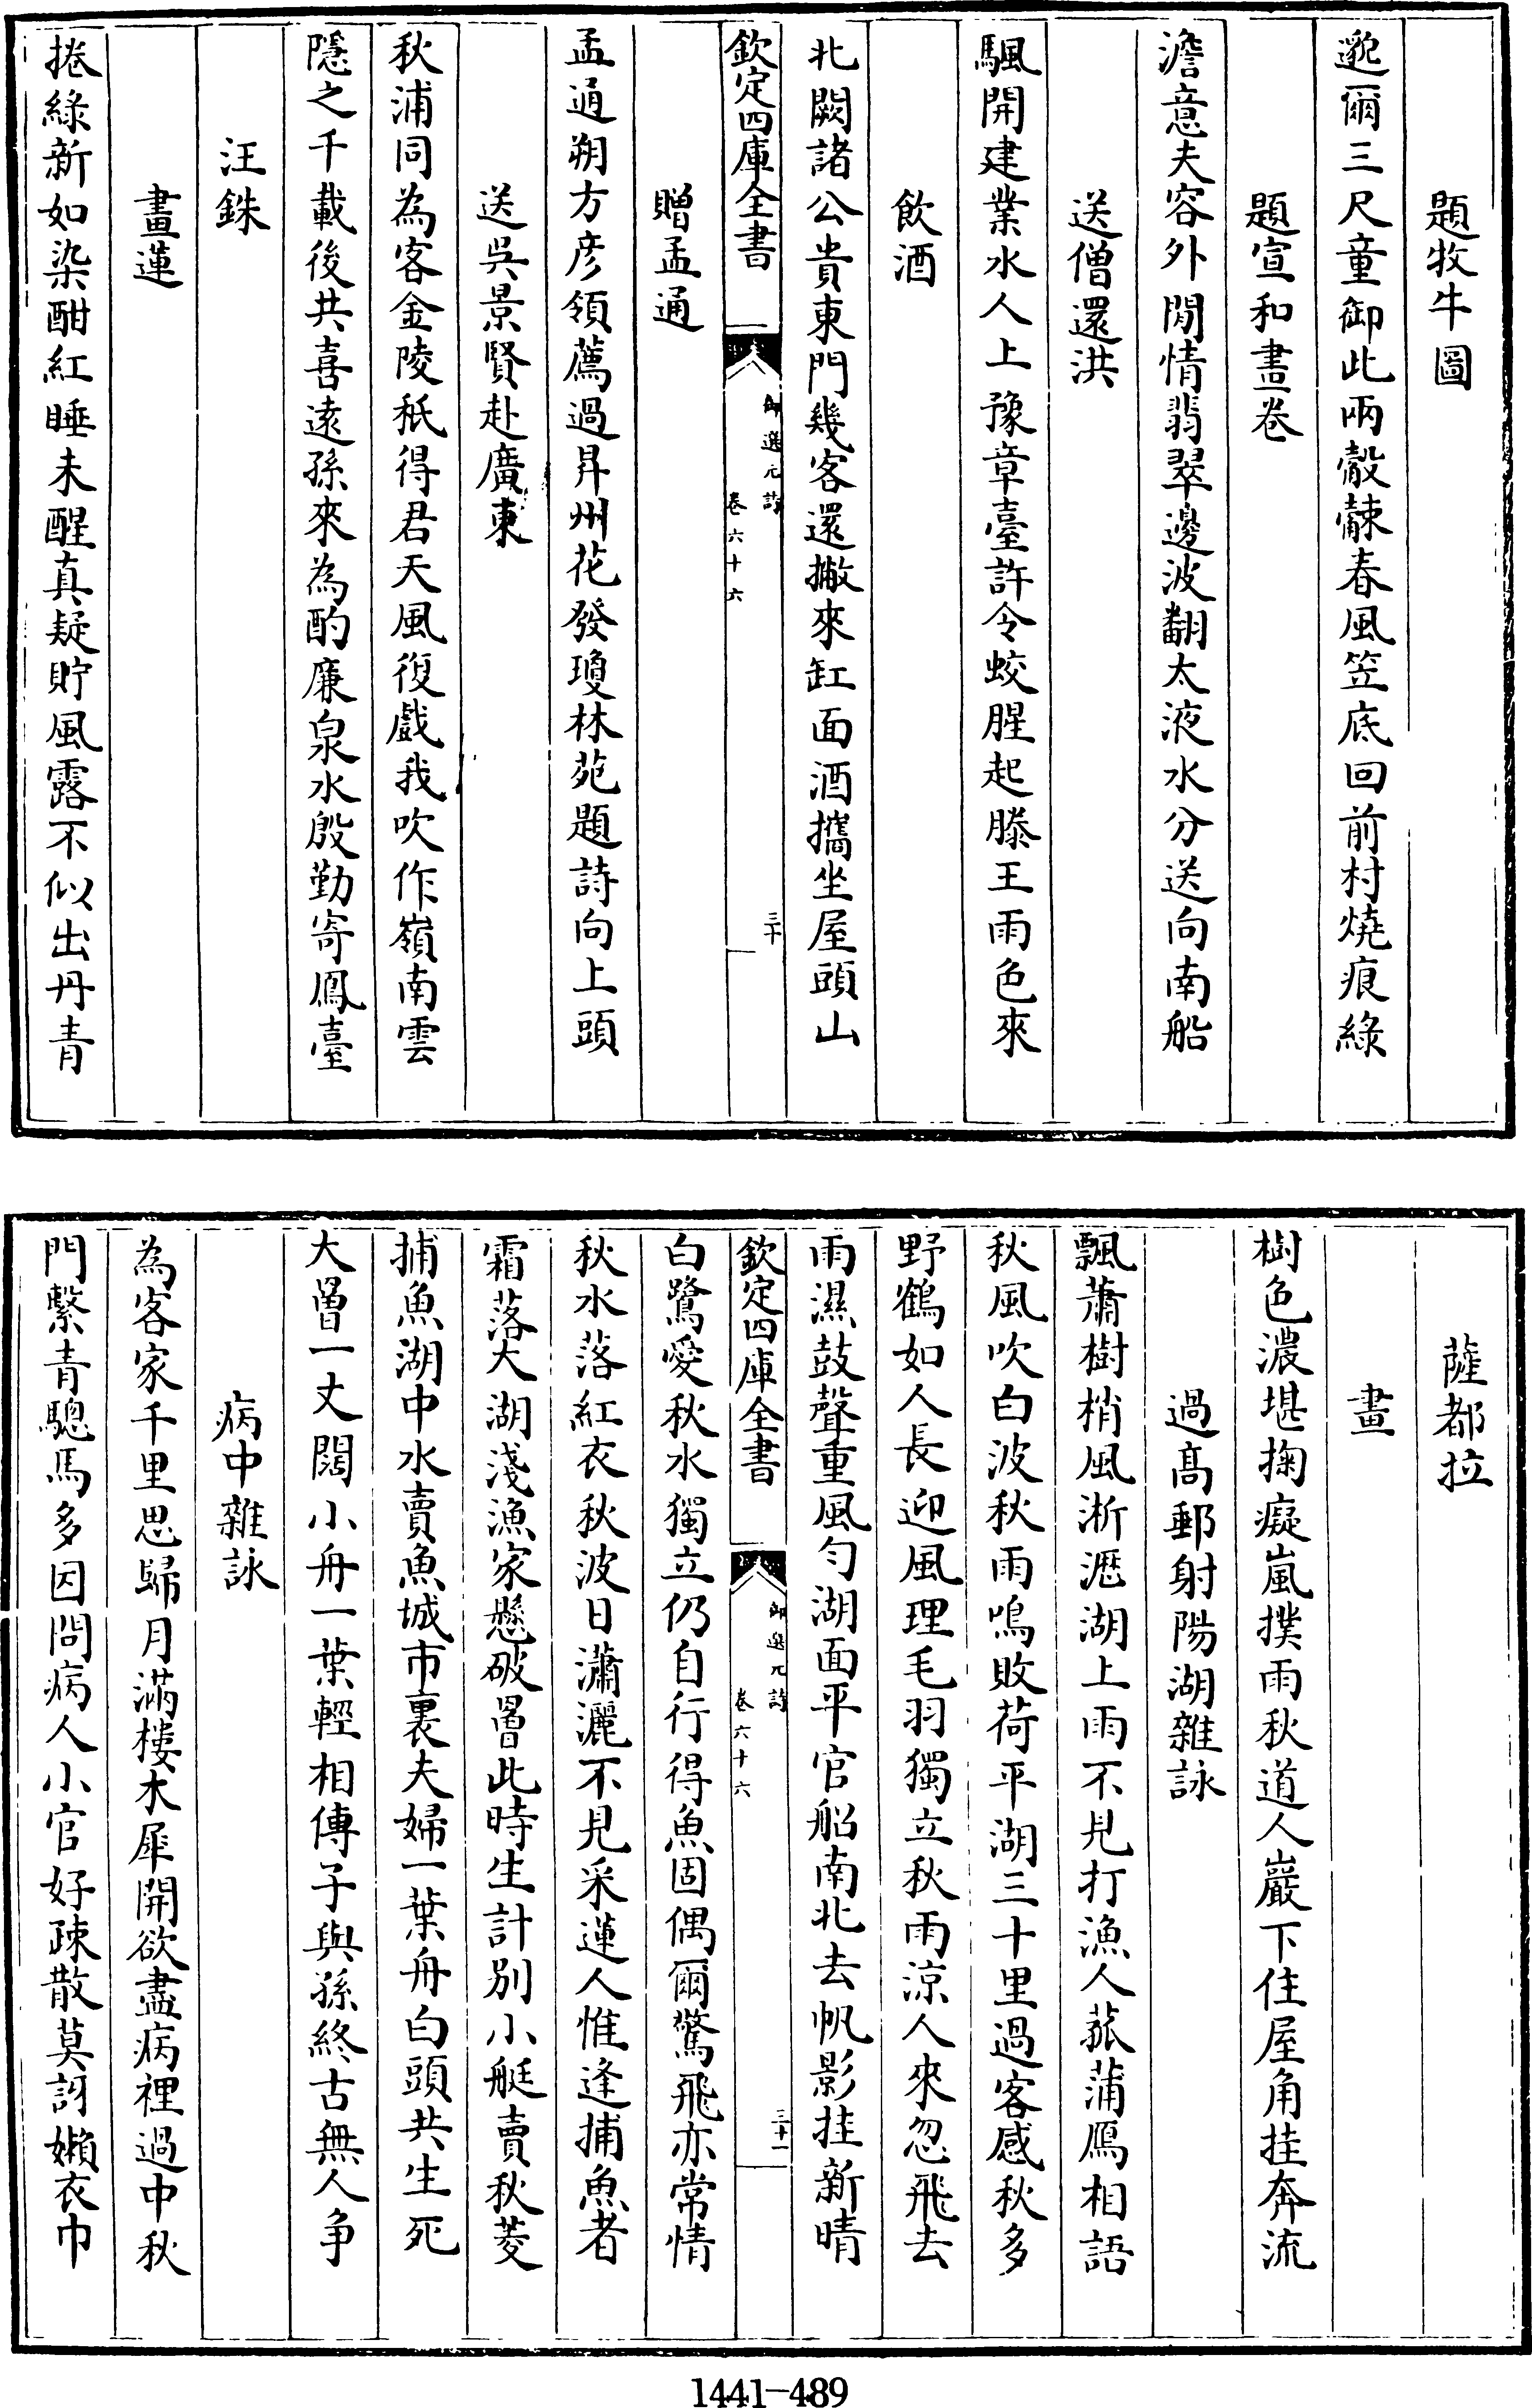 題牧牛圖
邈爾三尺童御此兩觳觫春風笠底回前村燒痕綠
題宣和畫卷
澹意夫容外閒情翡翠邊波翻太液水分送向南船
送僧還洪
颿開建業水人上豫章臺許令蛟腥起滕王雨色來
飲酒
北闕諸公貴東門幾客還撇來缸面酒攜坐屋頭山
欽定四庫全書
御選元詩
卷六十六
三十
贈孟通
孟通朔方彥領薦過昇州花發瓊林苑題詩向上頭
送吳景賢赴廣東
秋浦同為客金陵秖得君天風復戲我吹作嶺南雲
隱之千載後共喜遠孫來為酌廉泉水殷勤寄鳳臺
汪銖
畫蓮
捲綠新如染酣紅睡未醒真疑貯風露不似出丹青
薩都拉
畫
樹色濃堪掬癡嵐撲雨秋道人巖下住屋角挂奔流
過髙郵射陽湖雜詠
飄蕭樹梢風淅瀝湖上雨不見打漁人菰蒲鴈相語
秋風吹白波秋雨鳴敗荷平湖三十里過客感秋多
野鶴如人長迎風理毛羽獨立秋雨涼人來忽飛去
雨濕鼓聲重風勻湖面平官船南北去帆影挂新晴
欽定四庫全書
御選元詩
卷六十六
三十一
白鷺愛秋水獨立仍自行得魚固偶爾驚飛亦常情
秋水落紅衣秋波日瀟灑不見采蓮人惟逢捕魚者
霜落大湖淺漁家懸破罾此時生計別小艇賣秋菱
捕魚湖中水賣魚城市裏夫婦一葉舟白頭共生死
大罾一丈闊小舟一葉輕相傳子與孫終古無人爭
病中雜詠
為客家千里思歸月滿樓木犀開欲盡病裡過中秋
門繫青驄馬多因問病人小官好疎散莫訝嬾衣巾
1441-489